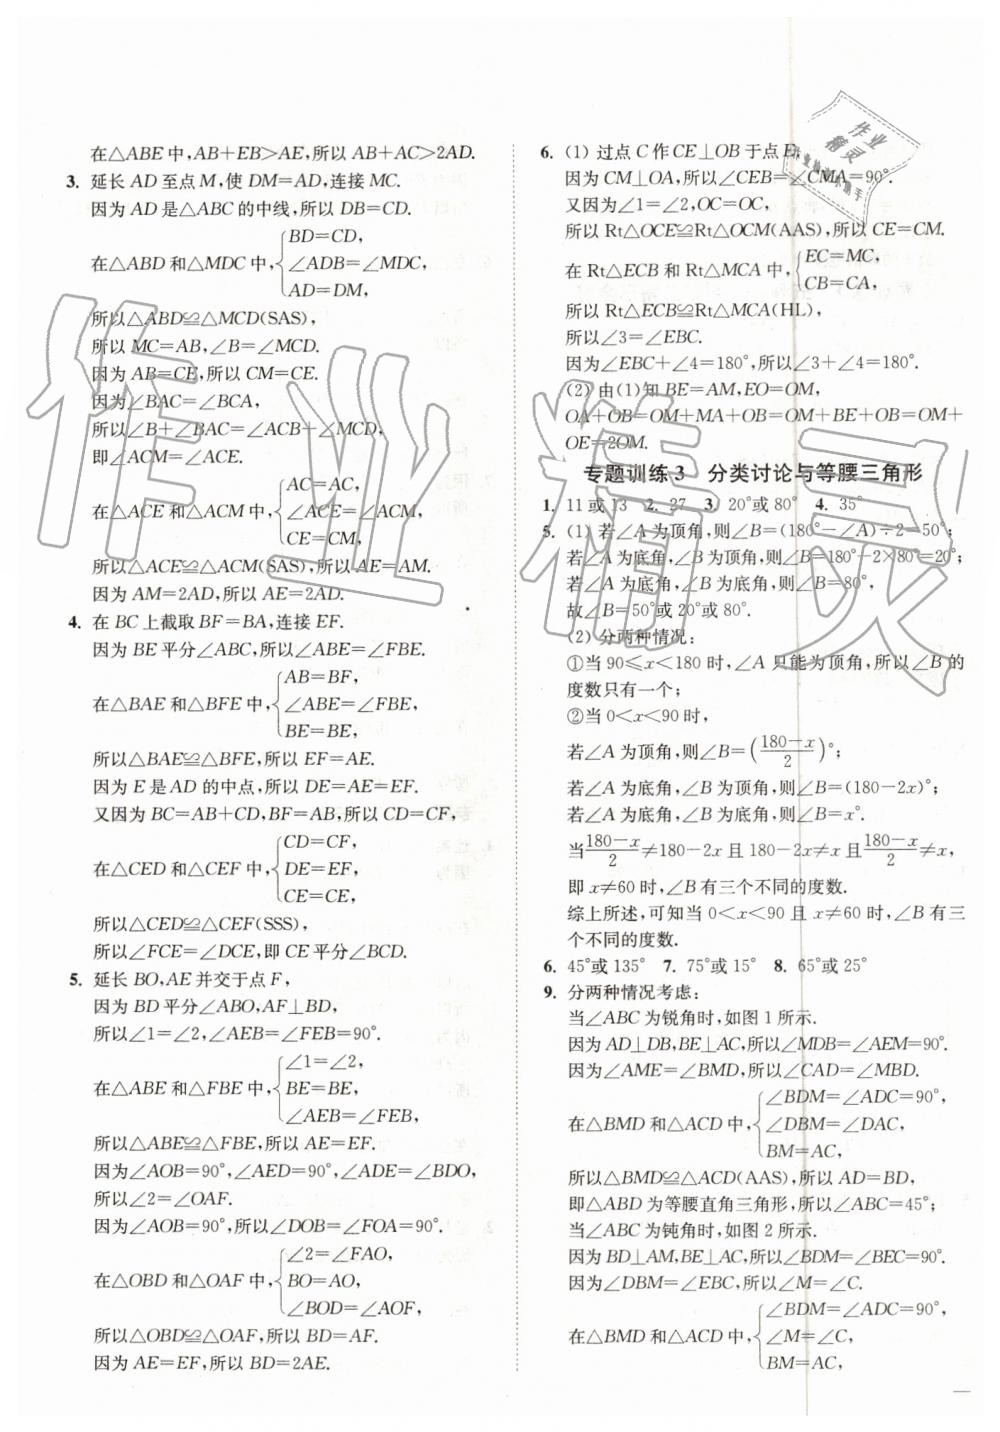 在△ABE中,AB+EB>AE,所以AB+AC>2AD.
3. 延长AD至点M,使DM=AD,连接MC.
因为AD是△ABC的中线,所以DB=CD.
在△ABD和△MDC中,{BD=CD,
∠ADB=∠MDC,
AD=DM,
所以△ABD≌△MCD(SAS),
所以MC=AB,∠B=∠MCD.
因为AB=CE,所以CM=CE.
因为∠BAC=∠BCA,
所以∠B+∠BAC=∠ACB+∠MCD,
即∠ACM=∠ACE.
在△ACE和△ACM中,{AC=AC,
∠ACE=∠ACM,
CE=CM,
所以△ACE≌△ACM(SAS),所以AE=AM.
因为AM=2AD,所以AE=2AD.
4. 在BC上截取BF=BA,连接EF.
因为BE平分∠ABC,所以∠ABE=∠FBE.
在△BAE和△BFE中,{AB=BF,
∠ABE=∠FBE,
BE=BE,
所以△BAE≌△BFE,所以EF=AE.
因为E是AD的中点,所以DE=AE=EF.
又因为BC=AB+CD,BF=AB,所以CD=CF,
在△CED和△CEF中,{CD=CF,
DE=EF,
CE=CE,
所以△CED≌△CEF(SSS),
所以∠FCE=∠DCE,即CE平分∠BCD.
5. 延长BO,AE并交于点F,
因为BD平分∠ABO,AF⊥BD,
所以∠1=∠2,∠AEB=∠FEB=90°.
在△ABE和△FBE中,{∠1=∠2,
BE=BE,
∠AEB=∠FEB,
所以△ABE≌△FBE,所以AE=EF.
因为∠AOB=90°,∠AED=90°,∠ADE=∠BDO,
所以∠2=∠OAF.
因为∠AOB=90°,所以∠DOB=∠FOA=90°.
在△OBD和△OAF中,{∠2=∠FAO,
BO=AO,
∠BOD=∠AOF,
所以△OBD≌△OAF,所以BD=AF.
因为AE=EF,所以BD=2AE.
6. (1) 过点C作CE⊥OB于点E,
因为CM⊥OA,所以∠CEB=∠CMA=90°.
又因为∠1=∠2,OC=OC,
所以Rt△OCE≌Rt△OCM(AAS),所以CE=CM.
在Rt△ECB和Rt△MCA中,{EC=MC,
CB=CA,
所以Rt△ECB≌Rt△MCA(HL),
所以∠3=∠EBC.
因为∠EBC+∠4=180°,所以∠3+∠4=180°.
(2) 由(1)知BE=AM,EO=OM,
OA+OB=OM+MA+OB=OM+BE+OB=OM+
OE=2OM.
专题训练3 分类讨论与等腰三角形
1. 11或13 2. 27 3. 20°或80° 4. 35°
5. (1) 若∠A为顶角,则∠B=(180°-∠A)÷2=50°;
若∠A为底角,∠B为顶角,则∠B=180°-2×80°=20°;
若∠A为底角,∠B为底角,则∠B=80°,
故∠B=50°或20°或80°.
(2) 分两种情况:
①当90≤x<180时,∠A只能为顶角,所以∠B的
度数只有一个;
②当0<x<90时,
若∠A为顶角,则∠B=(180-x/2)°;
若∠A为底角,∠B为顶角,则∠B=(180-2x)°;
若∠A为底角,∠B为底角,则∠B=x°.
当180-x/2≠180-2x且180-2x≠x且180-x/2≠x,
即x≠60时,∠B有三个不同的度数.
综上所述,可知当0<x<90且x≠60时,∠B有三
个不同的度数.
6. 45°或135° 7. 75°或15° 8. 65°或25°
9. 分两种情况考虑:
当∠ABC为锐角时,如图1所示.
因为AD⊥DB,BE⊥AC,所以∠MDB=∠AEM=90°.
因为∠AME=∠BMD,所以∠CAD=∠MBD.
在△BMD和△ACD中,{∠BDM=∠ADC=90°,
∠DBM=∠DAC,
BM=AC,
所以△BMD≌△ACD(AAS),所以AD=BD,
即△ABD为等腰直角三角形,所以∠ABC=45°;
当∠ABC为钝角时,如图2所示.
因为BD⊥AM,BE⊥AC,所以∠BDM=∠BEC=90°.
因为∠DBM=∠EBC,所以∠M=∠C.
在△BMD和△ACD中,{∠BDM=∠ADC=90°,
∠M=∠C,
BM=AC,
作业精灵
作业
精灵